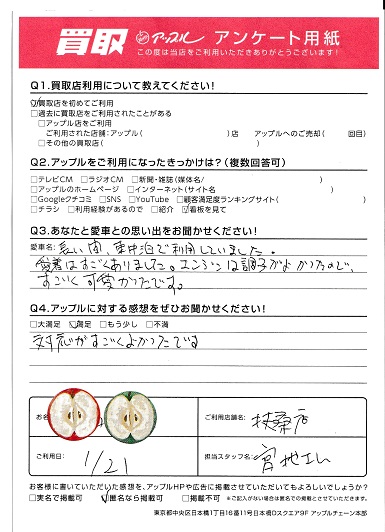 買取 アップル アンケート用紙
この度は当店をご利用いただきありがとうございます!
Q1.買取店利用について教えてください!
☑買取店を初めてご利用
□過去に買取店をご利用されたことがある
□アップル店をご利用
ご利用された店舗:アップル( )店 アップルへのご売却( 回目)
□その他の買取店( )
Q2.アップルをご利用になったきっかけは?(複数回答可)
□テレビCM □ラジオCM □新聞・雑誌(媒体名/ )
□アップルのホームページ □インターネット(サイト名 )
□Google口コミ □SNS □YouTube □顧客満足度ランキングサイト( )
□チラシ □利用経験があるので □紹介 ☑看板を見て
Q3.あなたと愛車との思い出をお聞かせください!
愛車名: 長い間、車中泊で利用していました。
愛着はすごくありました。エンジンは調子がよかったので、
すごく可愛かったです。
Q4.アップルに対する感想をぜひお聞かせください!
□大満足 ☑満足 □もう少し □不満
対応がすごくよかったです
お名
ご利用店舗名: 扶桑店
ご利用日: 1/21
担当スタッフ名: 宮地さん
お客様に書いていただいた感想を、アップルHPや広告に掲載させていただいてもよろしいでしょうか?
□実名で掲載可 ☑匿名なら掲載可 □掲載不可 ※ご記入がない場合は匿名での掲載とさせていただきます。
東京都中央区日本橋1丁目16番11号日本橋Dスクエア9F アップルチェーン本部